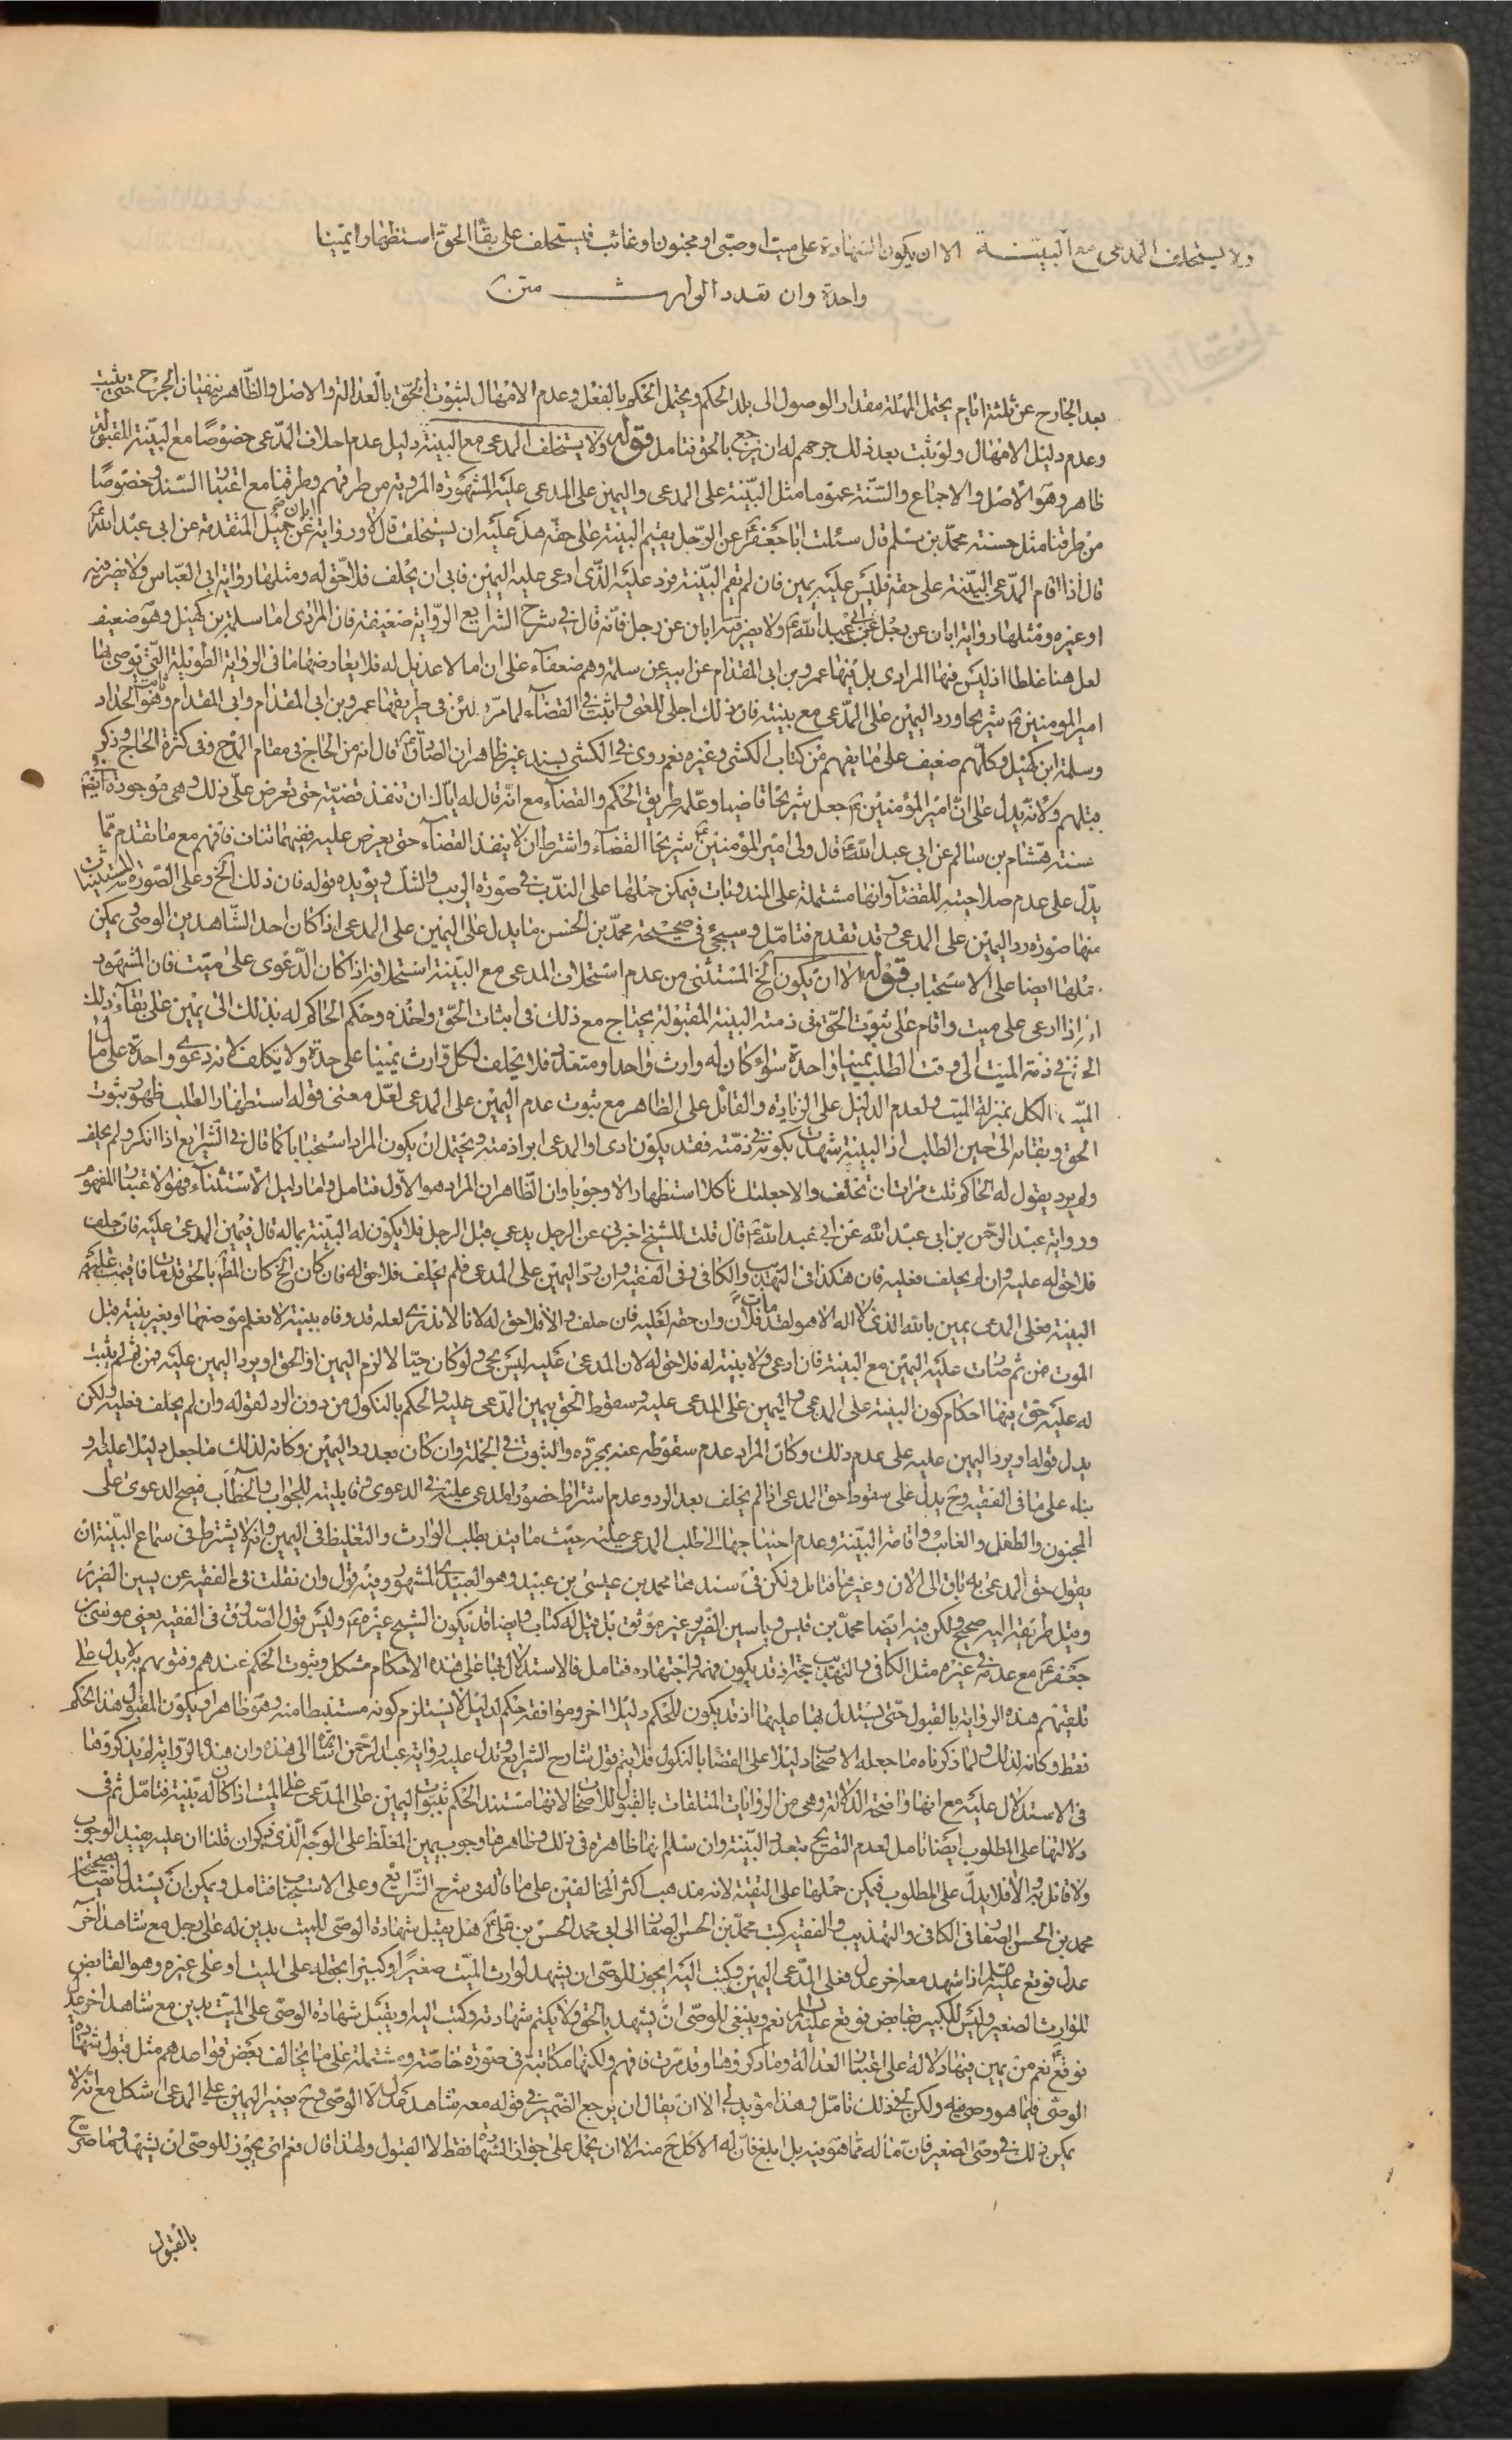 ولا يستحلف المدعى مع البينة الا ان يكون الشهادة على ميت او صبى او مجنون او غائب فيستحلف على بقاء الحق استظهارا يمينا
واحدة وان تعدد الوارث متن
بعد الجارح عن ثلثة ايام يحتمل المهلة مقدار الوصول الى بلد الحكم ويحتمل الحكم بالفعل وعدم الامهال لثبوت الحق بالعدالة والاصل والظاهر ينفيان الجرح حتى يثبت
وعدم دليل الامهال ولو ثبت بعد ذلك جرحهم له ان يرجع بالحق فتامل قوله ولا يستحلف المدعى مع البينة دليل عدم احلاف المدعى خصوصا مع البينة المقبولة
ظاهر وهو الاصل والاجماع والسنة عموما مثل البينة على المدعى واليمين على المدعى عليه المشهورة المروية من طرقهم وطرقنا مع اعتبار السند وخصوصا
من طرقنا مثل حسنة محمد بن مسلم قال سئلت ابا جعفر عن الرجل يقيم البينة على حقه هل عليه ان يستحلف قال لا ورواية جميل المتقدمة عن ابى عبد الله
قال اذا اقام المدعى البينة على حقه فليس عليه يمين فان لم يقم البينة فرد عليه الذى ادعى عليه اليمين فابى ان يحلف فلا حق له ومثلها رواية ابى العباس ولا يضر فيه
او غيره ومثلها رواية ابان عن رجل عن ابى عبد الله ولا يضر فيه ابان عن رجل فانه قال فى شرح الشرايع الرواية ضعيفة فان المرادى اما سلمة بن كهيل وهو ضعيف
لعل هنا غلطا اذ ليس فيها المرادى بل فيها عمرو بن ابى المقدام عن ابيه عن سلمة وهم ضعفاء على ان اما لا عديل له فلا يعارضها ما فى الرواية الطويلة التى توصى بها
امير المومنين شريحا ورد اليمين على المدعى مع بينته فان ذلك اجلى للعمى واثبت فى القضاء لما مر لئن فى طريقها عمرو بن ابى المقدام وابى المقدام وهو ثابت الحداد
وسلمة ابن كهيل وكلهم ضعيف على ما يفهم من كتاب الكشى وغيره نعم روى فى الكشى بسند غير ظاهر ان الصادق قال انه من الحاج فى مقام المدح وفى كثرة الحاج وذكره
مثلهم ولانه يدل على ان امير المؤمنين جعل شريحا قاضيا وعلمه طريق الحكم والقضاء مع انه قال له اياك ان تنفذ قضية حتى تعرض على ذلك وهى موجودة ايضا
حسنة هشام بن سالم عن ابى عبد الله قال ولى امير المؤمنين شريحا القضاء واشترط ان لا ينفذ القضاء حتى يعرض عليه ففيهما تناف فافهم مع ما تقدم مما
يدل على عدم صلاحيته للقضاء وانها مشتملة على المندوبات فيمكن حملها على الندب فى صورة الريب والشك ويؤيده قوله فان ذلك الخ وعلى الصورة المستثنيات
منها صورة رد اليمين على المدعى وقد تقدم فتامل وسيجئ فى صحيحة محمد بن الحسن ما يدل على اليمين على المدعى اذا كان احد الشاهدين الوصى يمكن
حملها ايضا على الاستحباب قوله الا ان يكون الخ المستثنى من عدم استحلاف المدعى مع البينة استحلافه اذا كان الدعوى على ميت فان المشهور
اذا ادعى على ميت واقام على ثبوت الحق فى ذمته البينة المقبولة يحتاج مع ذلك فى اثبات الحق واخذه وحكم الحاكم له بذلك الى يمين على بقاء ذلك
الحق فى ذمة الميت الى وقت الطلب يمينا واحدة سواء كان له وارث واحد او متعدد فلا يحلف لكل وارث يمينا على حدة ولا يكلف لانه دعوى واحدة على مال
الميت الكل بمنزلة الميت ولعدم الدليل على الزيادة والقائل على الظاهر مع ثبوت عدم اليمين على المدعى لعل معنى قوله استظهارا لطلب ظهور ثبوت
الحق وبقائه الى حين الطلب اذ البينة شهدت بكونه فى ذمته فقد يكون ادى او المدعى ابرا ذمته ويحتمل ان يكون المراد استحبابا كما قال فى الشرايع اذا انكر ولم يحلف
ولم يرد يقول له الحاكم ثلث مرات ان تحلف والا جعلتك ناكلا استظهارا لا وجوبا وان الظاهر ان المراد هو الاول فتامل واما دليل الاستثناء فهو الاعتبار المفهوم
ورواية عبد الرحمن بن ابى عبد الله عن ابى عبد الله قال قلت للشيخ اخبرنى عن الرجل يدعى قبل الرجل فلا يكون له البينة بماله قال فيمين المدعى عليه فان حلف
فلا حق له عليه وان لم يحلف فعليه فان هكذا فى التهذيب والكافى وفى الفقيه وان رد اليمين على المدعى فلم يحلف فلا حق له فان كان الخ كان المط بالحق قد مات فاقيمت عليه
البينة فعلى المدعى يمين بالله الذى لا اله الا هو لقد مات فلان وان حقه لعليه فان حلف والا فلا حق له لانا لا ندرى لعله قد وفاه ببينة لا نعلم موضعها او بغير بينة قبل
الموت فمن ثم صارت عليه اليمين مع البينة فان ادعى ولا بينة له فلا حق له لان المدعى عليه ليس بحى ولو كان حيا لالزم اليمين او الحق او يرد اليمين عليه فمن ثم لم يثبت
له عليه حق فيها احكام كون البينة على المدعى واليمين على المدعى عليه وسقوط الحق بيمين المدعى عليه والحكم بالنكول من دون الرد لقوله وان لم يحلف فعليه ولكن
يدل قوله او يرد اليمين عليه على عدم ذلك وكان المراد عدم سقوطه عنه بمجرده والثبوت فى الجملة وان كان بعد رد اليمين وكانه لذلك ما جعل دليلا عليه و
بناء على ما فى الفقيه وح يدل على سقوط حق المدعى اذا لم يحلف بعد الرد وعدم اشتراط حضور المدعى عليه فى الدعوى وقابليته للجواب والخطاب فيصح الدعوى على
المجنون والطفل والغائب واقامة البينة وعدم احتياجها الى طلب المدعى عليه حيث ما قيد بطلب الوارث والتغليظ فى اليمين وانه لا يشترط فى سماع البينة ان
يقول حق المدعى به باق الى الان وغيرها فتامل ولكن فى سندها محمد بن عيسى بن عبيد وهو العبيدى المشهور وفيه قول وان نقلت فى الفقيه عن يسين الضرير
وقيل طريقه اليه صحيح ولكن فيه ايضا محمد بن قيس وياسين الضرير غير موثق بل قيل له كتاب وايضا قد يكون الشيخ غيره وليس قول الصدوق فى الفقيه يعنى موسى بن
جعفر مع عدمه فى غيره مثل الكافى والتهذيب حجة اذ قد يكون فهمه واجتهاده فتامل فالاستدلال بها على هذه الاحكام مشكل وثبوت الحكم عندهم وفتويهم به لا يدل على
تلقيهم هذه الرواية بالقبول حتى يستدل بها عليها اذ قد يكون للحكم دليلا اخر وموافقة حكم لدليل لا يستلزم كونه مستنبطا منه وهو ظاهر او يكون المقبول هذا الحكم
فقط وكانه لذلك ولما ذكرناه ما جعله الاصحاب دليلا على القضا بالنكول فلا يتم قول شارح الشرايع وتدل عليه رواية عبد الرحمن الى هذه وان هذه الرواية لم يذكروها
فى الاستدلال عليه مع انها واضحة الدلالة وهى من الروايات المتلقات بالقبول للاصحاب لانها مستند الحكم بثبوت اليمين على المدعى على الميت اذا كان له بينة فتامل ثم فى
دلالتها على المطلوب ايضا تامل لعدم التصريح بتعدد البينة وان سلم انها ظاهرة فى ذلك وظاهرها وجوب يمين المغلظ على الوجه الذى ذكروان قلنا ان عليه يفيد الوجوب
ولا قائل به والا فلا يدل على المطلوب فيمكن حملها على التقية لانه مذهب اكثر المخالفين على ما قاله فى شرح الشرايع وعلى الاستحباب فتامل ويمكن ان يستدل بصحيحة
محمد بن الحسن الصفار فى الكافى والتهذيب والفقيه كتب محمد بن الحسن الصفار الى ابى محمد الحسن بن على هل يقبل شهادة الوصى للميت بدين له على رجل مع شاهد اخر
عدل فوقع عليه السلم اذا شهد معه اخر عدل فعلى المدعى اليمين وكتب اليه ايجوز للوصى ان يشهد لوارث الميت صغيرا وكبيرا بحق له على الميت او على غيره وهو القابض
للوارث الصغير وليس للكبير بقابض فوقع عليه السلم نعم وينبغى للوصى ان يشهد بالحق ولا يكتم شهادته وكتب اليه او يقبل شهادة الوصى على الميت بدين مع شاهد اخر عدل
فوقع نعم من بعد يمين فيها دلالة على اعتبار العدالة وما ذكروها وقد مرت فافهم ولكنها مكاتبة فى صورة خاصة ومشتملة على ما يخالف بعض قواعدهم مثل قبول شهادة
الوصى فيما هو وصى فيه ولكن فى ذلك تامل وهذا مؤيد له الا ان يقال ان يرجع الضمير فى قوله معه شاهد عدل لا الوصى وح يصير اليمين على المدعى اشكل مع انه لا
يمكن ذلك فى وصى الصغير فان ماله مما هو فيه بل ابلغ فان له الاكل ح منه الا ان يحمل على جواز الشهادة فقط لا القبول ولهذا قال نعم اى يجوز للوصى ان يشهد وما صرح
بالقبول